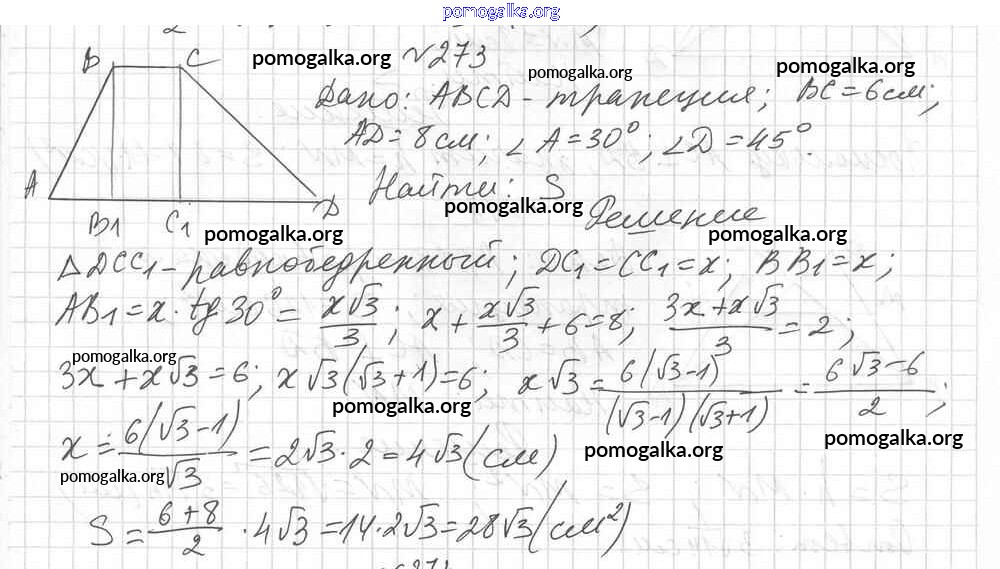 pomogalka.org
2
B C pomogalka.org №273
pomogalka.org pomogalka.org
Дано: ABCD - трапеция; BC = 6 см;
AD = 8 см; ∠A = 30°; ∠D = 45°
A D B1 C1
Найти: S
pomogalka.org
Решение
pomogalka.org pomogalka.org
ΔDCC1 - равнобедренный; DC1 = CC1 = x; BB1 = x;
AB1 = x · tg 30° = x√3/3; x + x√3/3 + 6 = 8; (3x + x√3)/3 = 2;
pomogalka.org
3x + x√3 = 6; x√3(√3 + 1) = 6; x√3 = 6(√3 - 1)/((√3 - 1)(√3 + 1)) = (6√3 - 6)/2;
pomogalka.org
x = 6(√3 - 1)/√3 = 2√3 · 2 = 4√3 (см)
pomogalka.org pomogalka.org pomogalka.org
S = (6 + 8)/2 · 4√3 = 14 · 2√3 = 28√3 (см²)